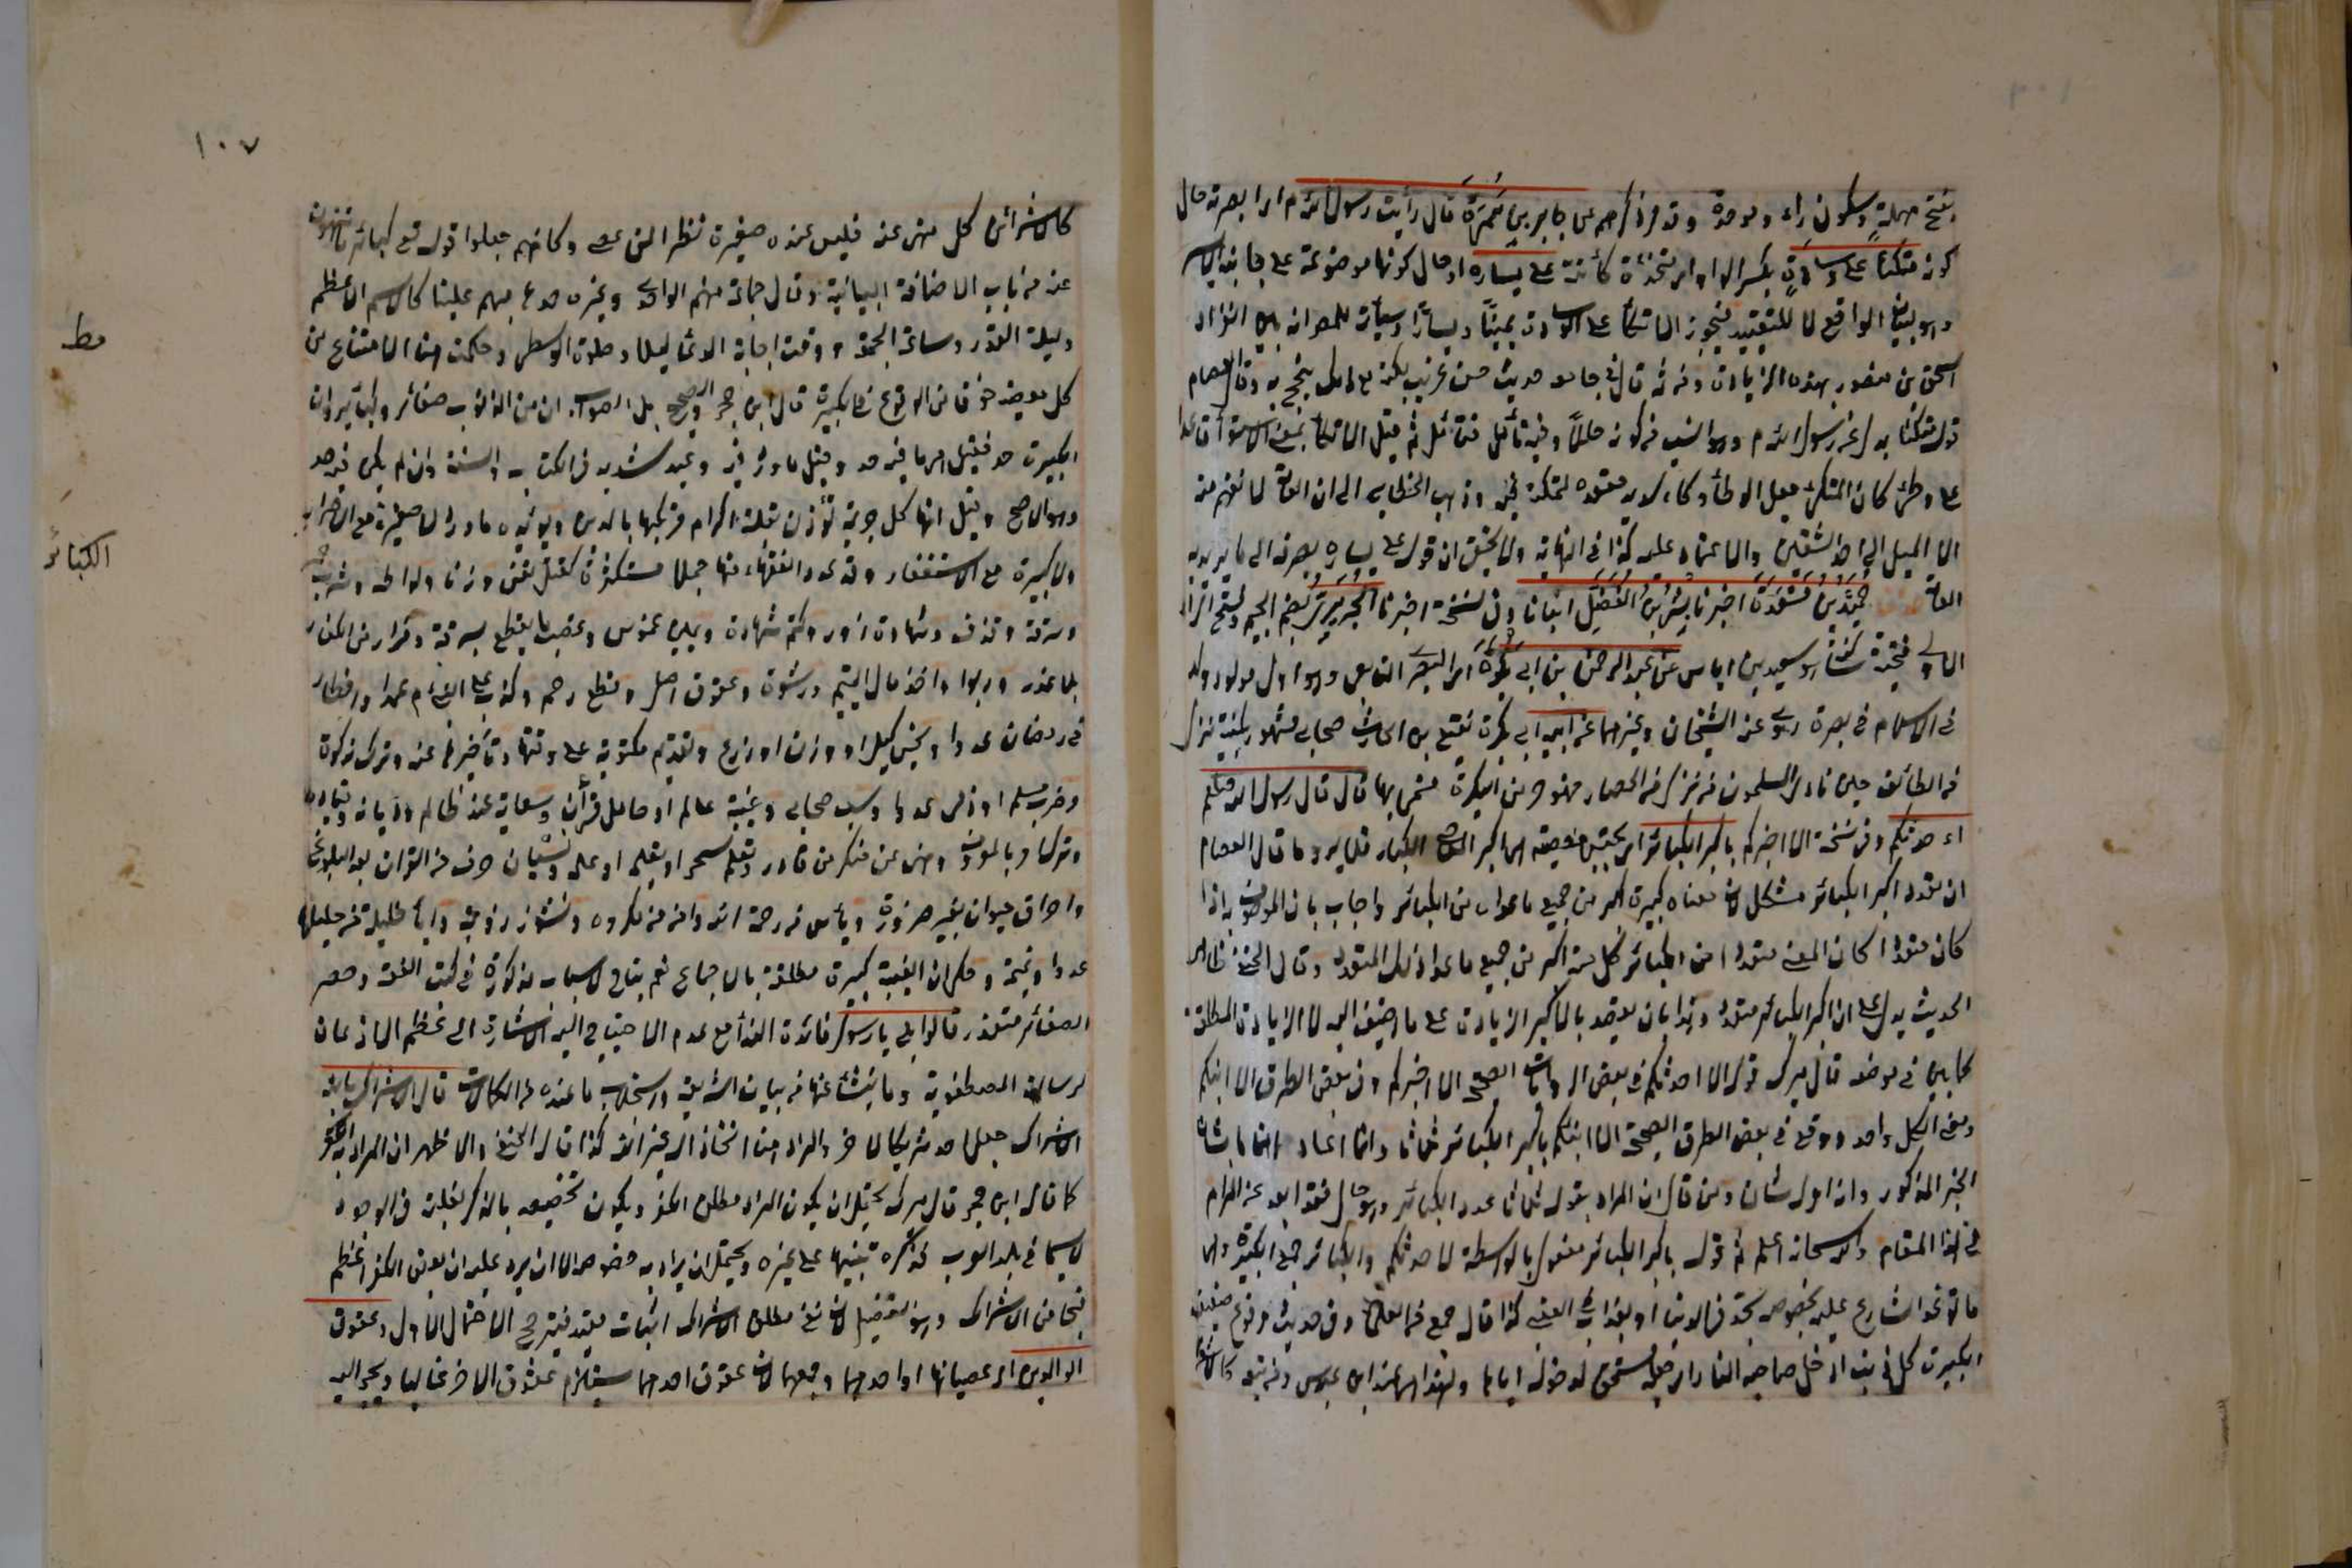 بفتح مهملة وسكون راء وموحدة وقد مر ذكرهم عن جابر بن سمرة قال رأيت رسول الله م اى ابصرته حال
كونه متكئا على وسادة بكسر الواو اى مخدة كائنة على يساره اى حال كونها موضوعة على جانبه الايسر
وهو لبيان الواقع لا للتقييد فيجوز الاتكاء على الوسادة يمينا ويسارا وسيأتى للمص انه بين انفراد
اسحق بن منصور بهذه الزيادة ومن ثم قال فى جامعه حديث حسن غريب لكنه مع ذلك يحتج به وقال العصام
قوله متكئا بدل عن رسول الله م
على وطئ كان المتكئ جعل الوطاء وكاء لايد مقعده لتمكنه فيه وذهب الخطابى الى ان العامة لا تفهم منه
الا الميل الى احد الشقين والاعتماد عليه كذا فى النهاية ولا يخفى ان قوله على يساره يصرفه الى ما يريد به
العامة حميد بن مسعدة اخبرنا بشر بن المفضل انبأنا وفى نسخة اخبرنا الجريرى بضم الجيم وفتح الراء
الاولى فتحتية ساكنة هو سعيد بن اياس عن عبد الرحمن بن ابى بكرة اى البصرى التابعى وهو اول مولود ولد
فى الاسلام فى بصرة روى عنه الشيخان وغيرهما عن ابيه ابى بكرة نفيع بن الحارث صحابى مشهور بكنيته نزل
من الطائف حين نادى المسلمون من نزل من الحصار فهو حر من البكرة فسمى بها قال قال رسول الله صلعم
ا لا احدثكم وفى نسخة الا اخبركم باكبر الكبائر
ان تعدد اكبر الكبائر مشكل لان معناه كبيرة اكبر من جميع ما عداه من الكبائر واجاب بان الموصوف به اذا
كان متعددا كان المعنى متعددا من الكبائر كل منه اكبر من جميع ما عدا ذلك المتعدد وقال الحنفى ظاهر
الحديث يدل على ان اكبر الكبائر متعدد وهذا بان يقصد بالاكبر الزيادة على ما اضيف اليه لا الزيادة المطلقة
كما بين فى موضعه قال ميرك قوله الا احدثكم فى بعض الروايات الصحيح الا اخبركم وفى بعض الطرق الا انبئكم
ومعنى الكل واحد ووقع فى بعض الطرق الصحيحة الا انبئكم باكبر الكبائر ثلاثا وانما اعاده اهتماما بشان
الخبر المذكور وانه امر له شان ومن قال ان المراد بقوله ثلاثا عدد الكبائر وهو حال فقد ابعد عن المرام
فى هذا المقام والله سبحانه اعلم ثم قوله باكبر الكبائر مفعول بالواسطة لاحدثكم والكبائر جمع الكبيرة وهى
ما توعد الشارع عليه بخصوصه بحد فى الدنيا او بعذاب فى العقبى كذا قال جمع من العلماء وفى حديث مرفوع ضعيف
الكبيرة كل ذنب ادخل صاحبه النار اى جعله مستحق لدخوله اياها ولهذا
كالاسفرائنى كل منهى عنه فليس عنده صغيرة نظرا لمن عصى وكانهم جعلوا قوله تع كبائر ما تنهون
عنه من باب الاضافة البيانية وقال جماعة منهم الواحدى وغيره حدها مبهم علينا كالاسم الاعظم
وليلة القدر وساعة الجمعة ووقت اجابة الدعاء ليلا وصلوة الوسطى وحكمته هنا الامتناع من
كل معصية خوفا من الوقوع فى الكبيرة قال ابن حجر والصحيح بل الصواب ان من الذنوب صغائر وكبائر وان
للكبيرة حد فقيل هى ما فيه حد وقيل ما ورد فيه وعيد شديد فى الكتاب والسنة وان لم يكن فيه حد
وهو الاصح وقيل انها كل جريمة تؤذن بقلة اكتراث مرتكبها بالدين ويؤيده ما ورد لا صغيرة مع الاصرار
ولا كبيرة مع الاستغفار وقد عدد الفقهاء منها جملا مستكثرة كقتل نفس وزنا ولواطة وشرب خمر
وسرقة وقذف وشهادة زور وكتم شهادة ويمين غموس وغصب ما يقطع بسرقة وفرار من الكفار
بلا عذر وربوا واخذ مال اليتيم ورشوة وعقوق اصل وقطع رحم وكذب على النبى م عمدا وافطار
فى رمضان عدوا وبخس كيل او وزن او ذرع وتقديم مكتوبة على وقتها وتاخيرها عنه وترك زكوة
وضرب مسلم او ذمى عدوا وسب صحابى وغيبة عالم او حامل قرآن وسعاية عند ظالم ودياثة وقيادة
وترك امر بالمعروف ونهى عن منكر من قادر وتعلم سحر او تعليمه او عمله ونسيان حرف من القرآن بعد البلوغ
واحراق حيوان بغير ضرورة ويأس من رحمة الله وامن من مكره ونشوز زوجة واباء حليلة من حليلها
عدوا ونميمة وحكى ان الغيبة كبيرة مطلقة بالاجماع نعم يباح لاسباب مذكورة فى كتب الفقه وحصر
الصغائر متعذر قالوا بلى يا رسول فائدة النداء مع عدم الاحتياج اليه الاشارة الى عظم الاذعان
لرسالة المصطفوية وما ينشأ عنها من بيان الشريعة واستجلاب ما عنده من الكمالات قال الاشراك بالله
الاشراك جعل احد شريكا لاخر والمراد هنا اتخاذ اله غير الله كذا قال الحنفى والاظهر ان المراد به الكفر
كما قال ابن حجر قال ميرك يحتمل ان يكون المراد مطلق الكفر ويكون تخصيصه بالذكر لغلبته فى الوجود
لاسيما فى بلاد العرب فذكره تنبيها على غيره ويحتمل ان يراد به خصوصه الا ان يرد عليه ان بعض الكفر اعظم
قبحا من الاشراك وهو التعطيل لانه نفى مطلق والاشراك اثبات مقيد فيترجح الاحتمال الاول وعقوق
الوالدين اى عصيانهما او احدهما وجمعهما لان عقوق احدهما يستلزم عقوق الاخر غالبا ويجر اليه
١٠٧
مط
الكبائر